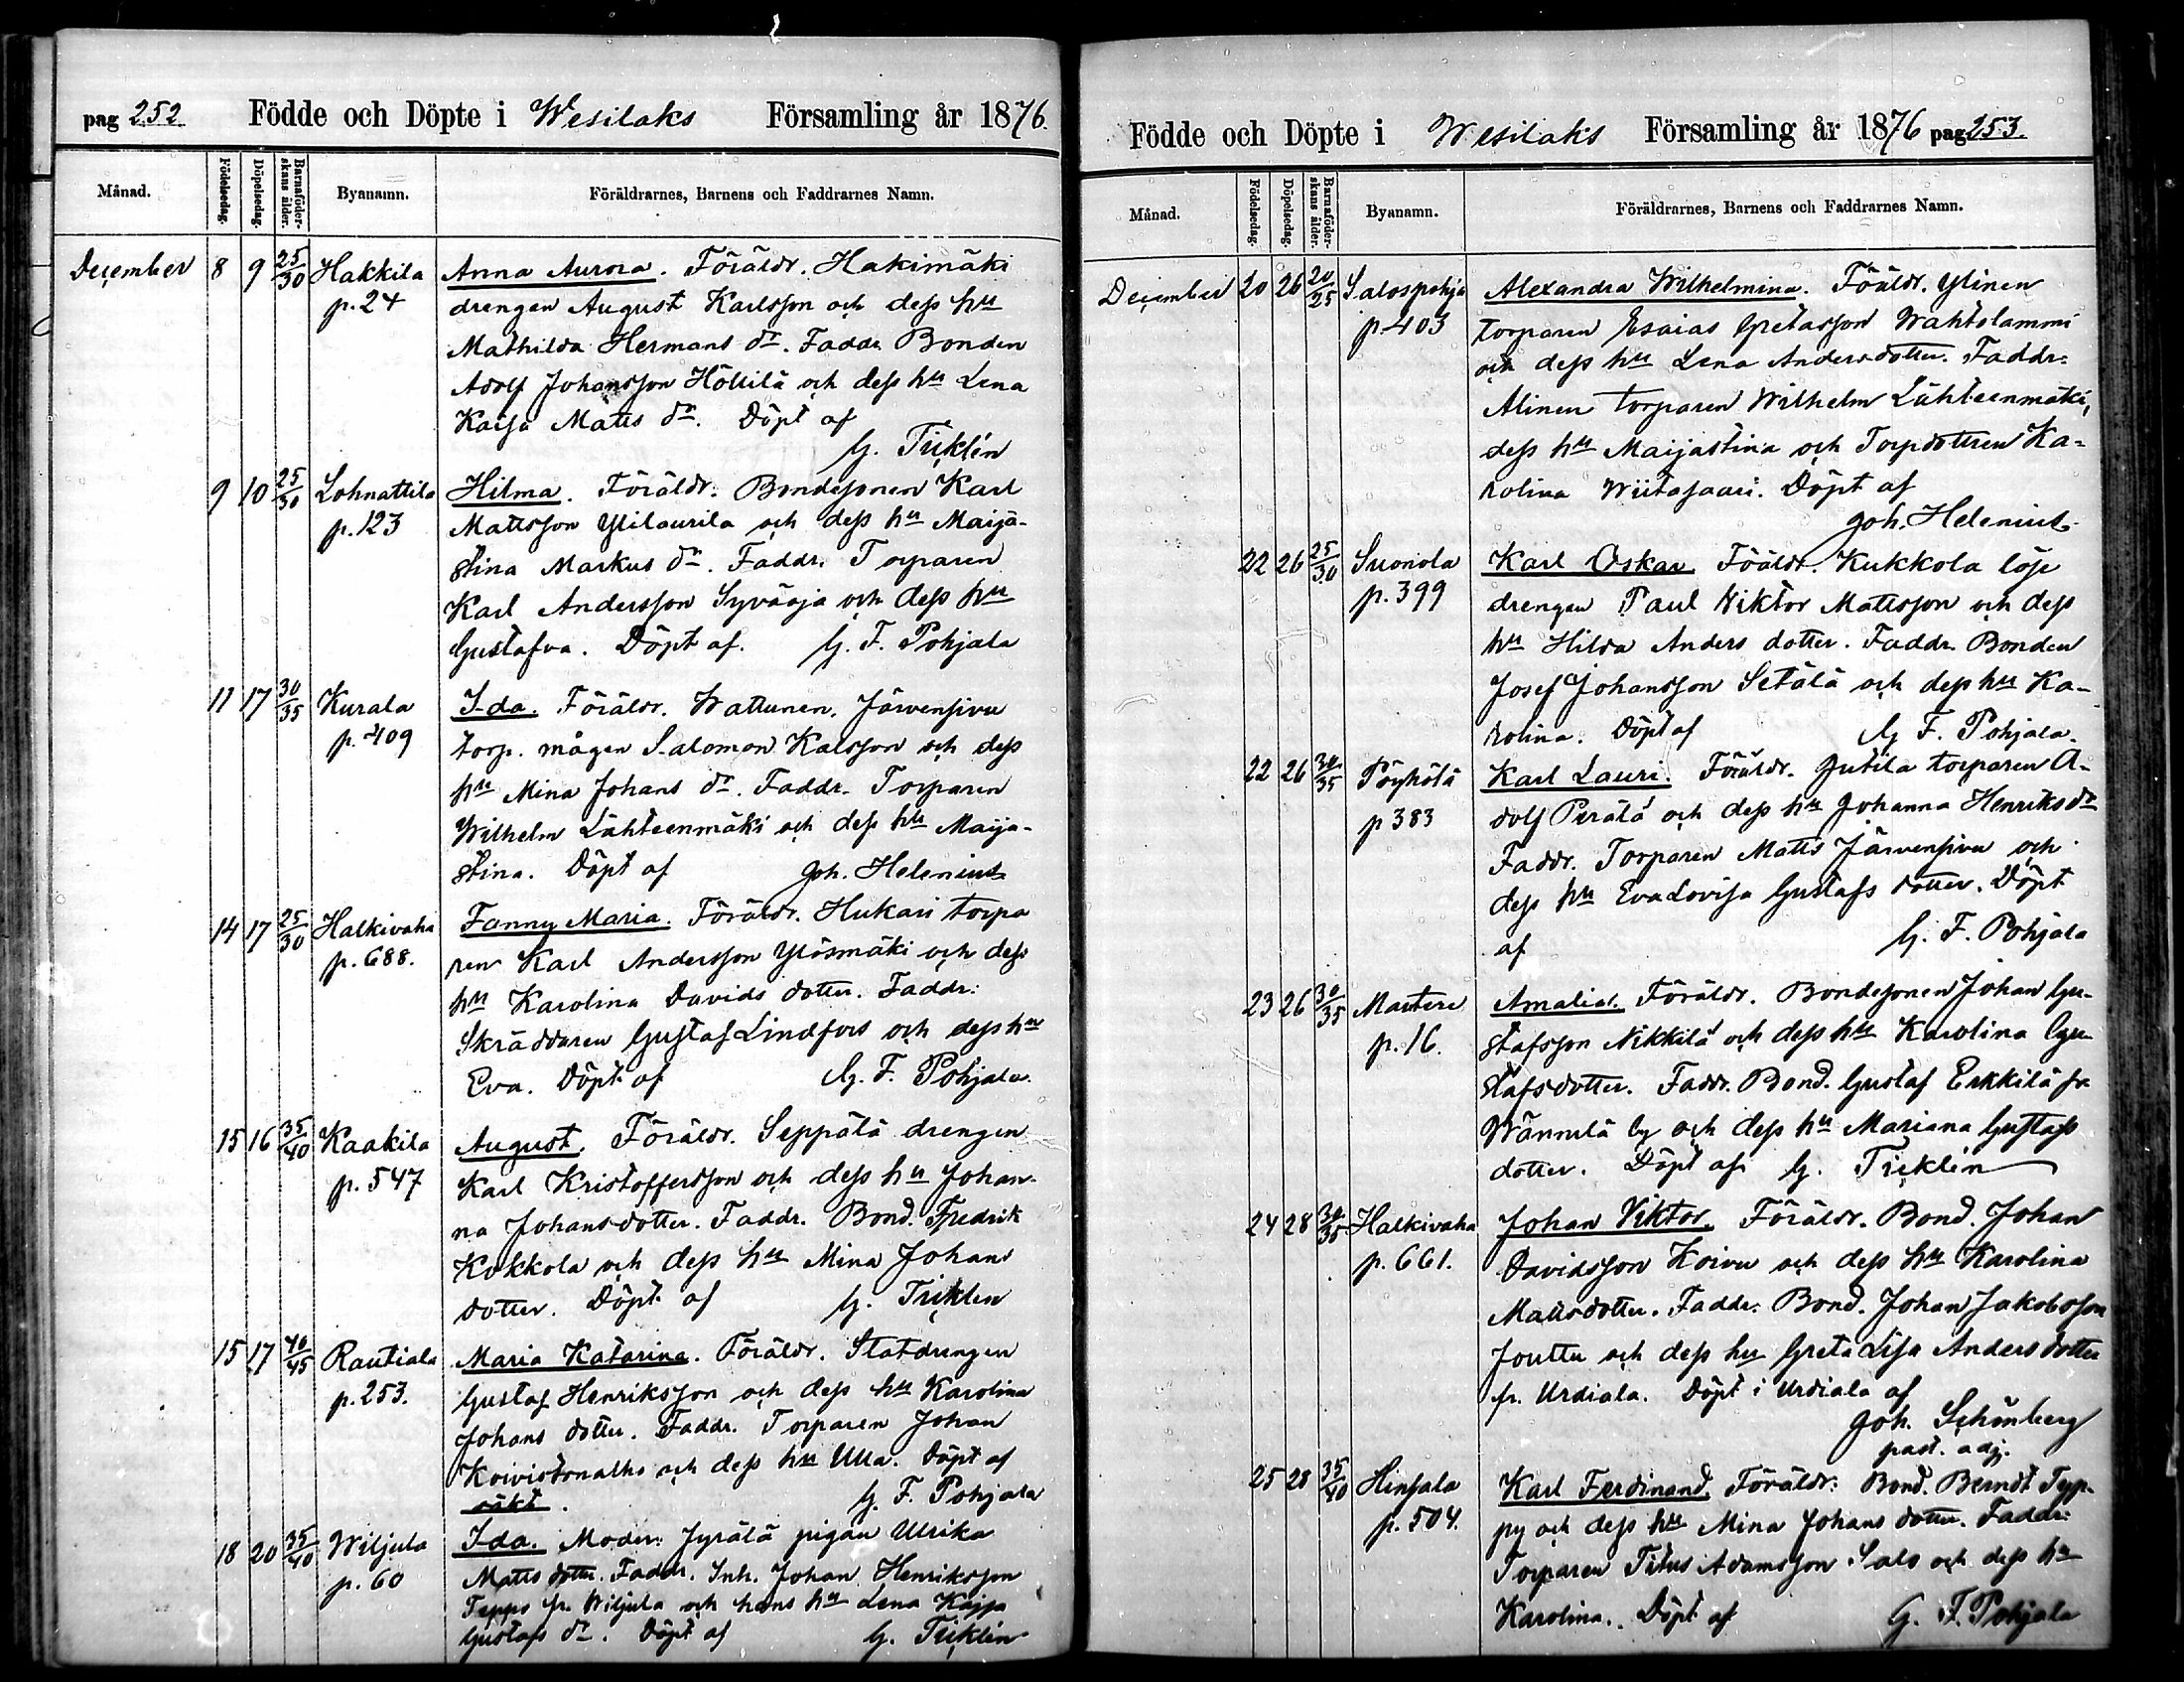 pag 252. Födde och Döpte i Wesilaks Församling år 1876.
Månad. Födelsedag. Döpelsedag. Barnaföderskans ålder. Byanamn. Föräldrarnes, Barnens och Faddrarnes Namn.
December 8 9 25/30 Hakkila Anna Aurora. Föräldr. Hakimäki
p. 24 drengen August Karlsson och dess hu
Mathilda Hermans dr. Faddr. Bonden
Adolf Johansson Höllilä och dess hu Lena
Kaisa Matts dr. Döpt af
G. Ticklén
9 10 25/30 Lohnattila Hilma. Föräldr. Bondesonen Karl
p. 123 Mattsson Ylilaurila och dess hu Maija-
stina Markus dr. Faddr. Torparen
Karl Andersson Syväoja och dess hu
Gustafva. Döpt af. G. F. Pohjala
11 17 30/35 Kurala Ida. Föräldr. Wattunen, Järvensivu
p. 409 torp. mågen Salomon Kalsson och dess
hu Mina Johans dr. Faddr. Torparen
Wilhelm Lähteenmäki och dess hu Maija-
stina. Döpt af Joh. Helenius
14 17 25/30 Halkivaha Fanny Maria. Föräldr. Hukari torpa
p. 688. ren Karl Andersson Ylösmäki och dess
hu Karolina Davids dotter. Faddr:
Skräddaren Gustaf Lindfors och dess hu
Eva. Döpt af G. F. Pohjala.
15 16 35/40 Kaakila August. Föräldr. Seppälä drengen
p. 547 Karl Kristoffersson och dess hu Johan-
na Johansdotter. Faddr. Bond. Fredrik
Kokkola och dess hu Mina Johans
dotter. Döpt af G. Ticklen
15 17 40/45 Rautiala Maria Katarina. Föräldr. Statdrengen
p. 253. Gustaf Henriksson och dess hu Karolina
Johans dotter. Faddr. Torparen Johan
och dess hu Ulla. Döpt af
G. F. Pohjala
18 20 35/40 Wiljula Ida. Moder: Jyrälä pigan Ulrika
p. 60 Matts dotter. Faddr. Inh. Johan Henriksson
Teppo fr. Wiljula och hans hu Lena Kajsa
Gustafs dr. Döpt af G. Ticklén
Födde och Döpte i Wesilaks Församling år 1876 pag 253.
Månad. Födelsedag. Döpelsedag. Barnaföderskans ålder. Byanamn. Föräldrarnes, Barnens och Faddrarnes Namn.
December 20 26 20/25 Salospohja Alexandra Wilhelmina. Föräldr. Ylinen
p. 403 torparen Esaias Gretasson Wahtolammi
och dess hu Lena Andersdotter. Faddr:
Alinen torparen Wilhelm Lähteenmäki,
dess hu Maijastina och Torpdottren Ka-
rolina Wiitasaari. Döpt af
Joh. Helenius
22 26 25/30 Suonola Karl Oskar. Föräldr. Kukkola löse
p. 399 drengen Paul Wiktor Mattsson och dess
hu Hilda Anders dotter. Faddr. Bonden
Josef Johansson Setälä och dess hu Ka-
rolina. Döpt af G. F. Pohjala.
22 26 30/35 Pöyhölä Karl Lauri. Föräldr. Jutila torparen A-
p 383 dolf Perälä och dess hu Johanna Henriks dr
Faddr. Torparen Matts Järvensivu och
dess hu Eva Lovisa Gustafs dotter. Döpt
af G. F. Pohjala
23 26 30/35 Mantere Amalia. Föräldr. Bondesonen Johan Gu-
p. 16. stafsson Nikkilä och dess hu Karolina Gu-
stafsdotter. Faddr. Bond. Gustaf Erkkilä fr
Wännilä by och dess hu Mariana Gustafs
dotter. Döpt af G. Ticklén
24 28 30/35 Halkivaha Johan Viktor. Föräldr. Bond. Johan
p. 661. Davidsson Koivu och dess hu Karolina
Mattsdotter. Faddr. Bond. Johan Jakobsson
Jouttu och dess hu Greta Lisa Anders dotter
fr. Urdiala. Döpt i Urdiala af
Joh. Schönberg
past. adj.
25 28 35/40 Hinsala Karl Ferdinand. Föräldr: Bond. Berndt Typ-
p. 504. py och dess hu Mina Johans dotter. Faddr:
Torparen Titus Adamsson Salo och dess hu
Karolina. Döpt af G. F. Pohjala